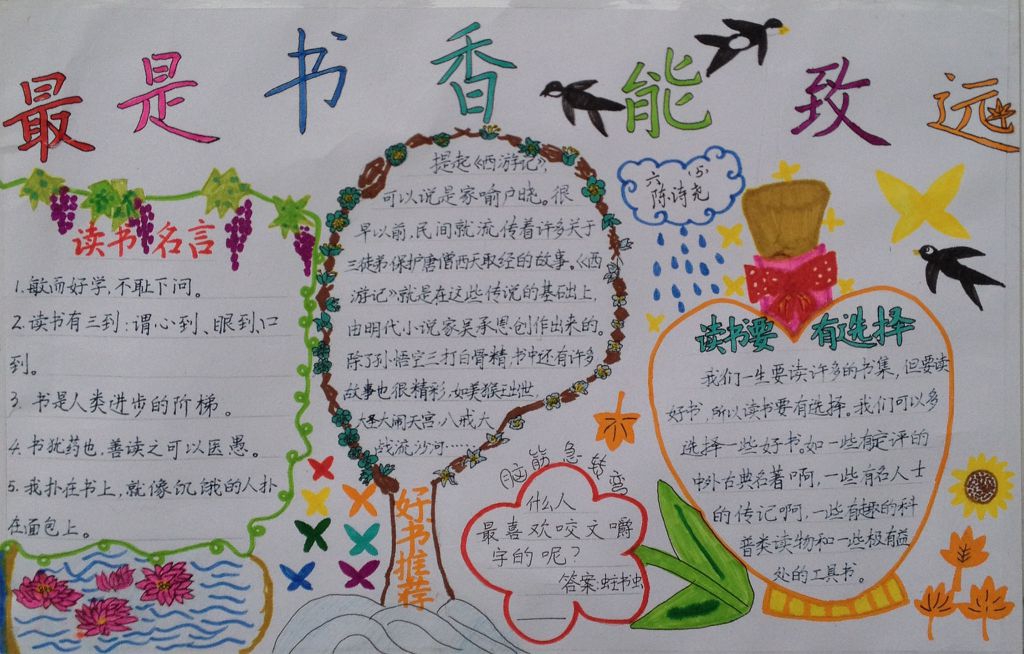 最是书香能致远
读书名言
1.敏而好学,不耻下问。
2.读书有三到:谓心到、眼到、口
到。
3.书是人类进步的阶梯。
4.书犹药也,善读之可以医愚。
5.我扑在书上,就像饥饿的人扑
在面包上。
提起《西游记》,
可以说是家喻户晓。很
早以前,民间就流传着许多关于
三徒弟保护唐僧西天取经的故事。《西
游记》就是在这些传说的基础上,
由明代小说家吴承恩创作出来的。
除了孙悟空三打白骨精,书中还有许多
故事也很精彩,如美猴王出世,
大圣大闹天宫,八戒大
战流沙河……
好书推荐
六(5)
陈诗尧
脑筋急转弯
什么人
最喜欢咬文嚼
字的呢?
答案:蛀书虫
读书要有选择
我们一生要读许多的书集,但要读
好书,所以读书要有选择。我们可以多
选择一些好书。如一些有定评的
中外古典名著啊,一些有名人士
的传记啊,一些有趣的科
普类读物和一些极有益
处的工具书。